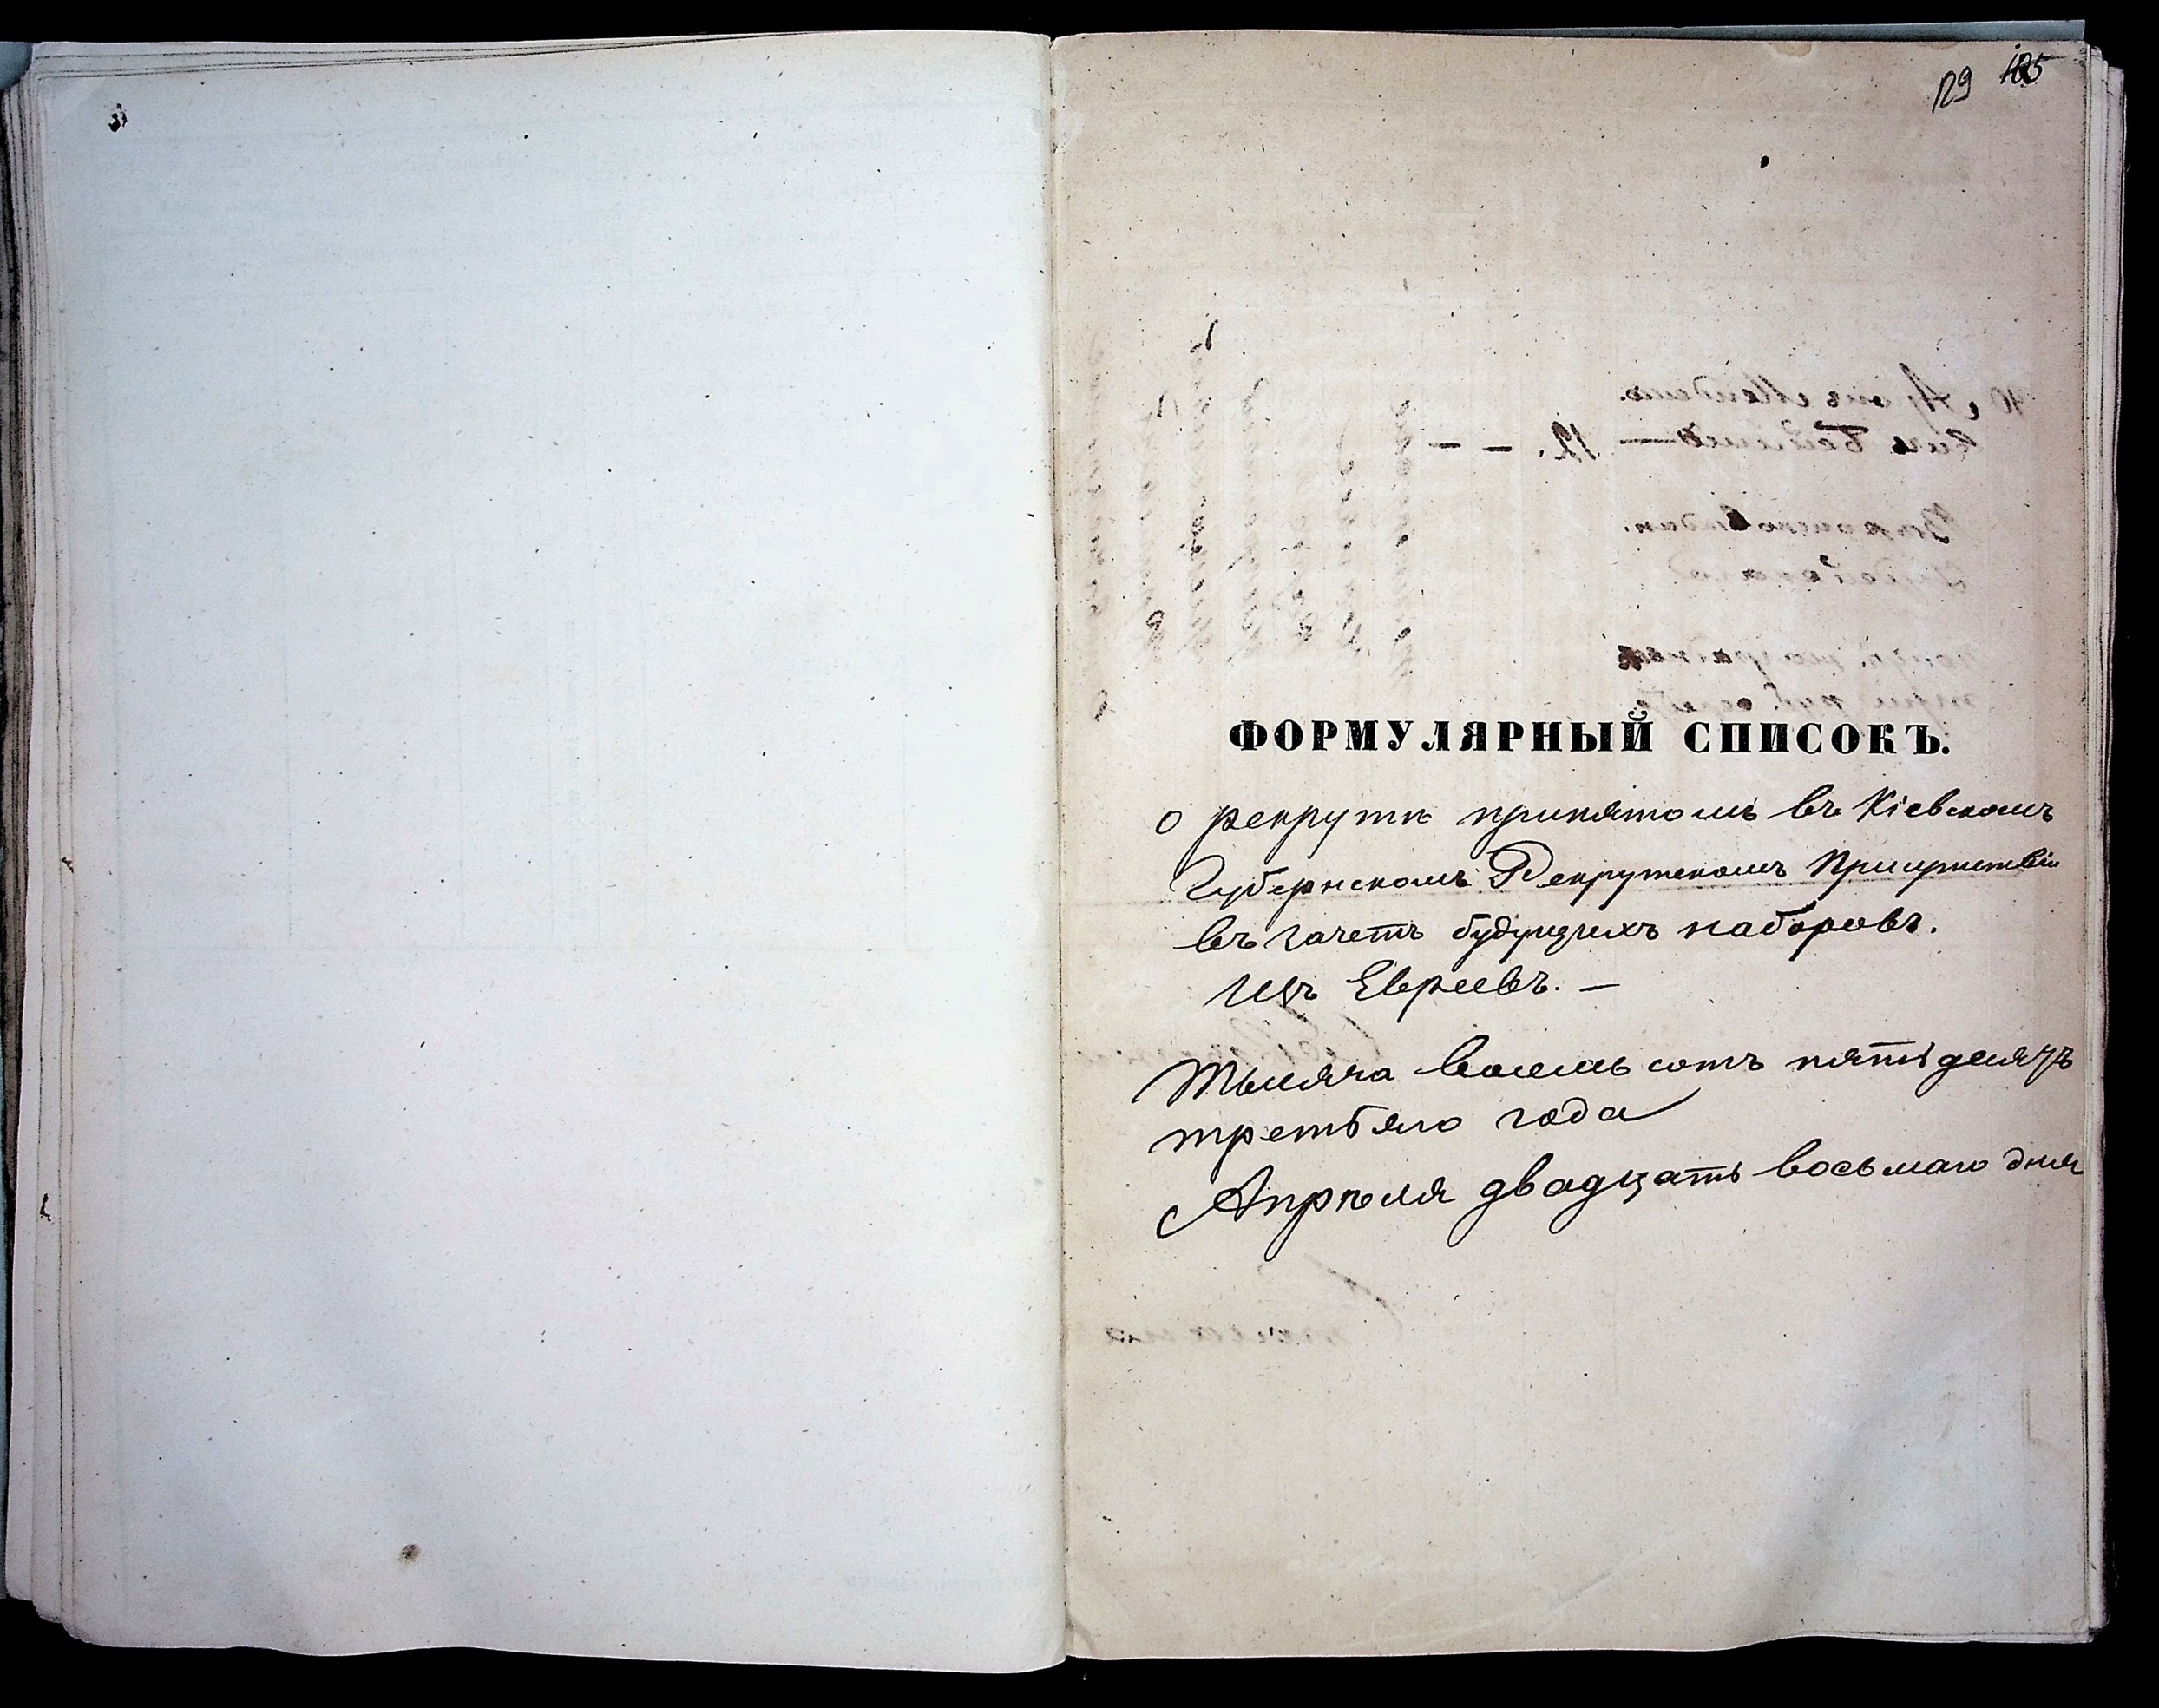 129
ФОРМУЛЯРНЫЙ СПИСОКЪ.
о рекрутѣ принятомъ въ Кіевскомъ
Губернскомъ Рекрутскомъ Присутствіи
въ зачетъ будущихъ наборовъ.
Изъ Евреевъ. —
Тысяча восемь сотъ пятьдесятъ
третьяго года
Апрѣля двадцать восьмаго дня